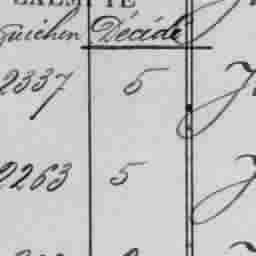 Guichen Décidé
2337 5
2263 5